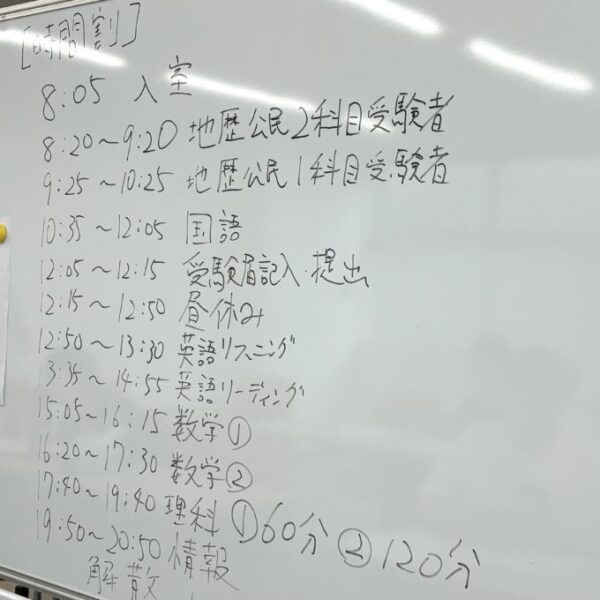 [時間割]
8:05 入室
8:20～9:20 地歴公民2科目受験者
9:25～10:25 地歴公民1科目受験者
10:35～12:05 国語
12:05～12:15 受験届記入・提出
12:15～12:50 昼休み
12:50～13:30 英語リスニング
13:35～14:55 英語リーディング
15:05～16:15 数学①
16:20～17:30 数学②
17:40～19:40 理科 ①60分 ②120分
19:50～20:50 情報
解散